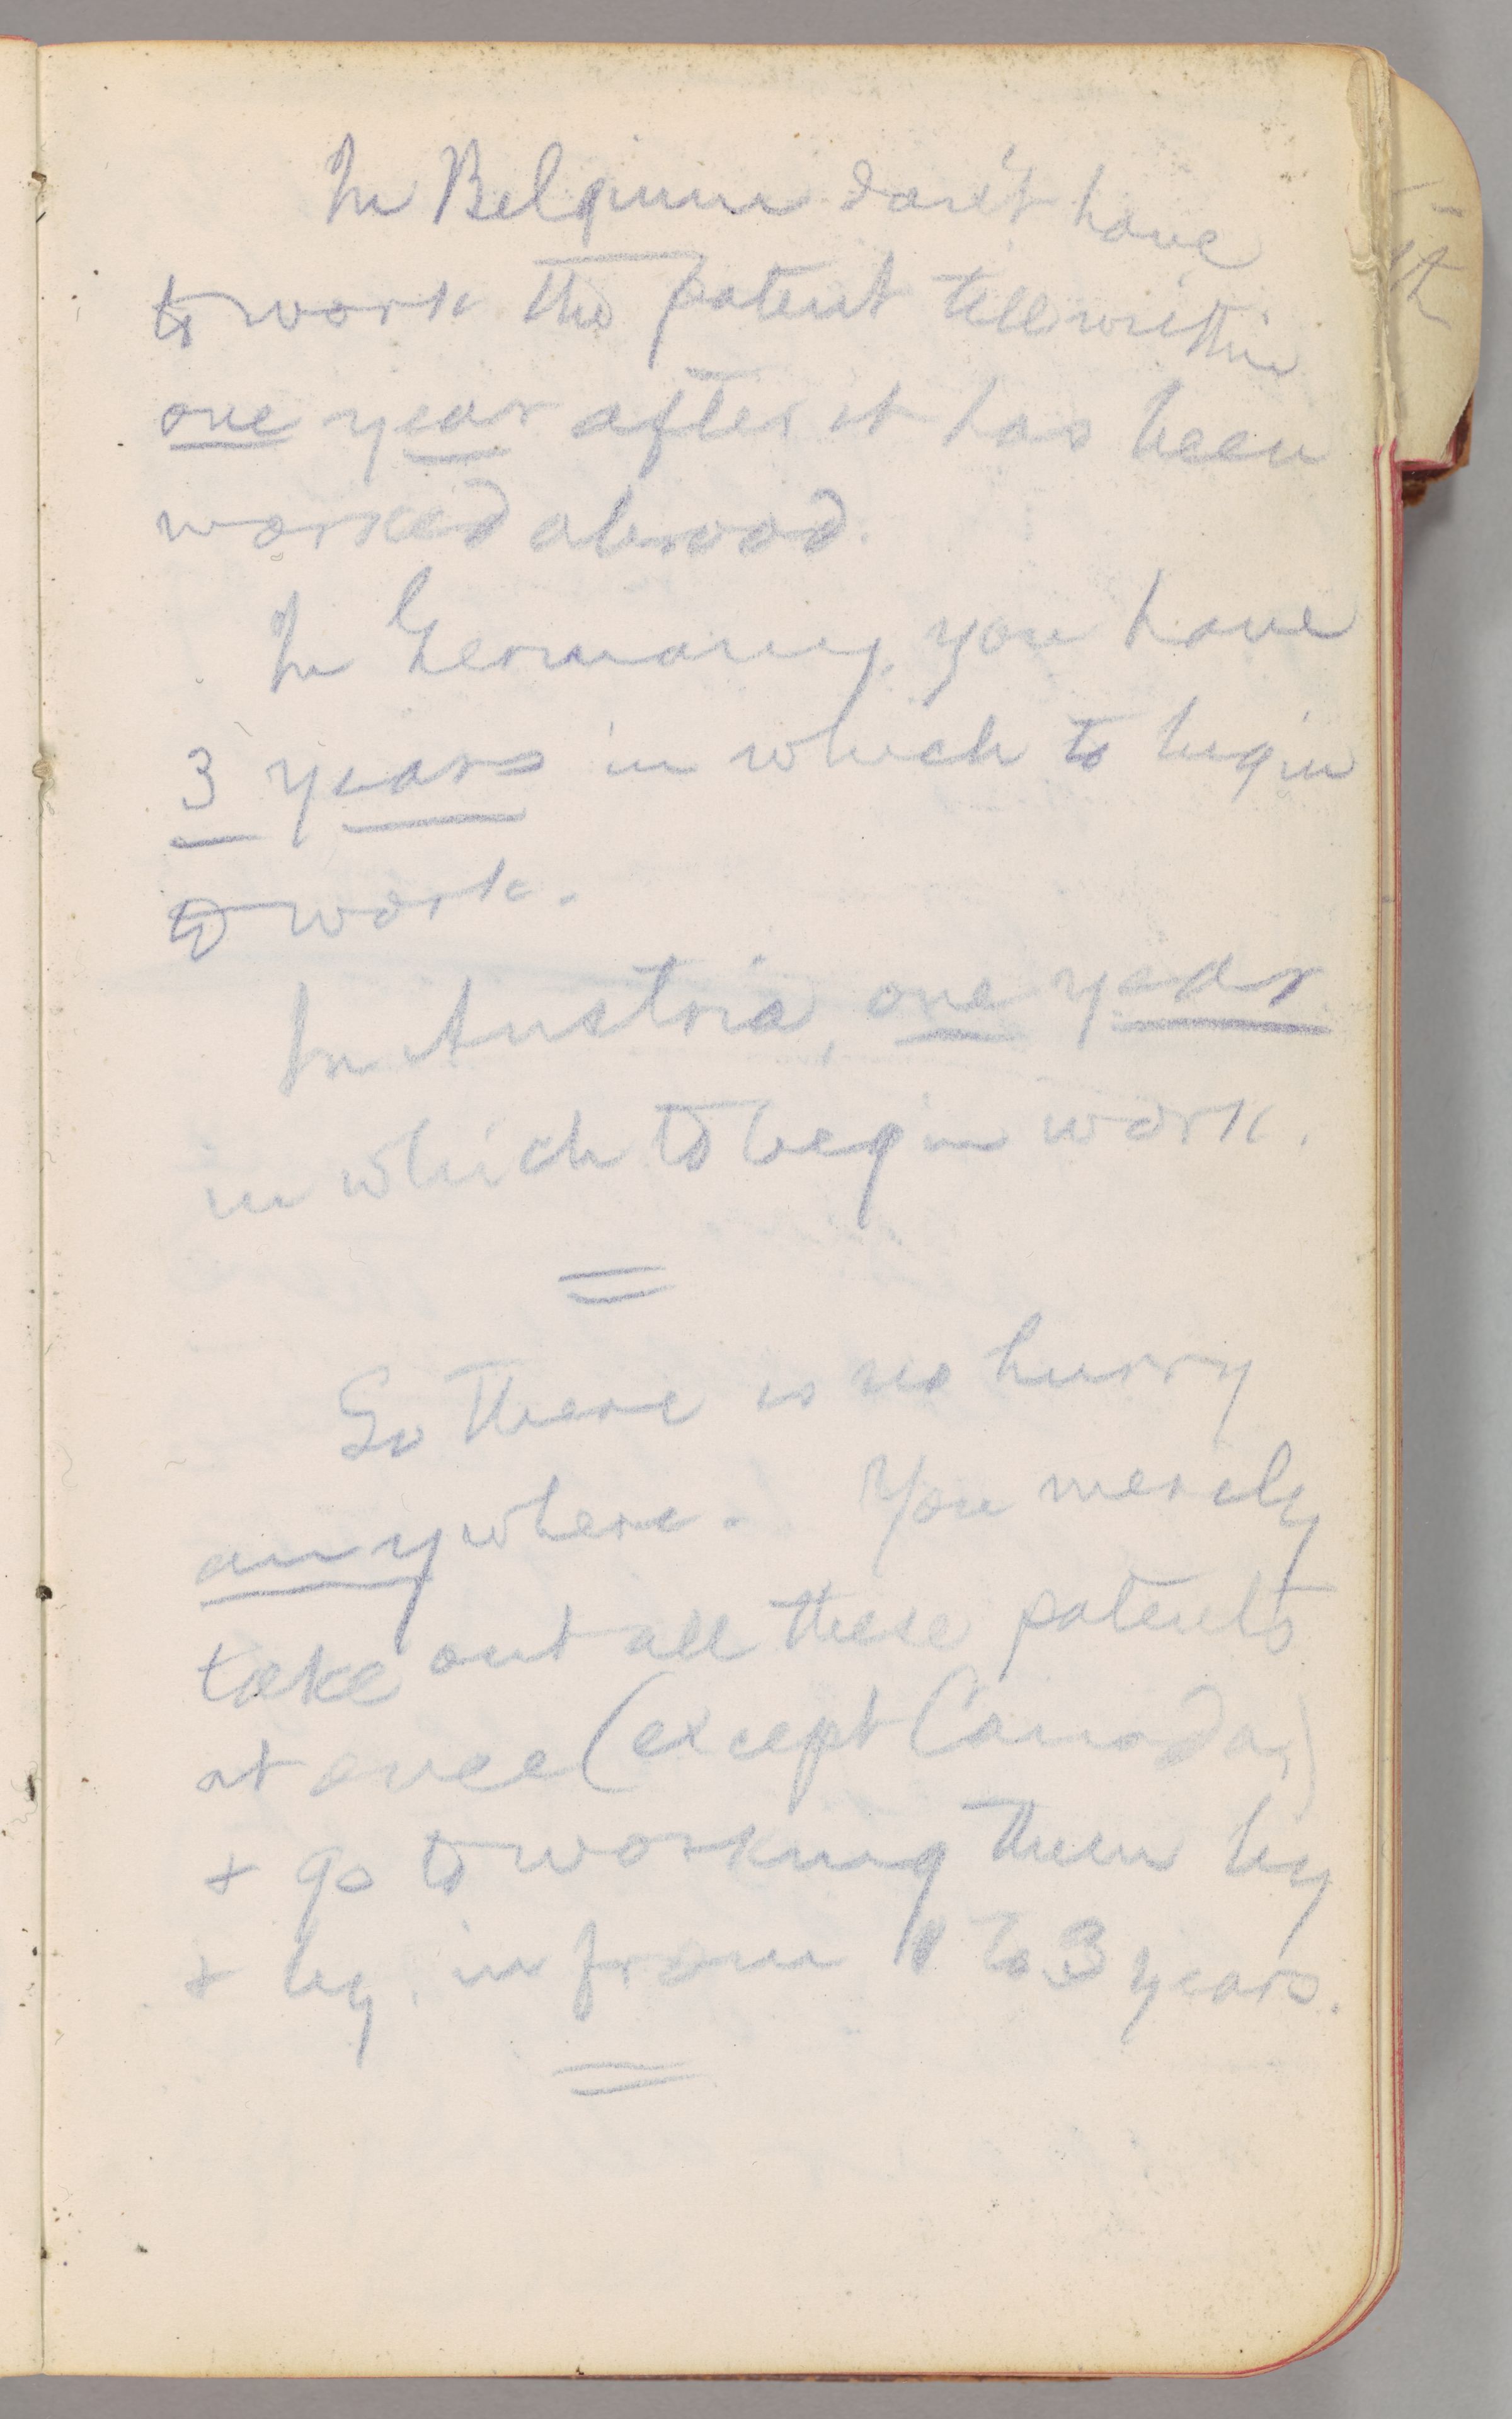 In Belgium don't have
to work the patent till within
one year after it has been
worked abroad.
In Germany, you have
3 years in which to begin
to work.
In Austria, one year
in which to begin work.
So there is no hurry
anywhere. You merely
take out all these patents
at once (except Canada,)
& go to working them by
& by, in from 1 to 3 years.